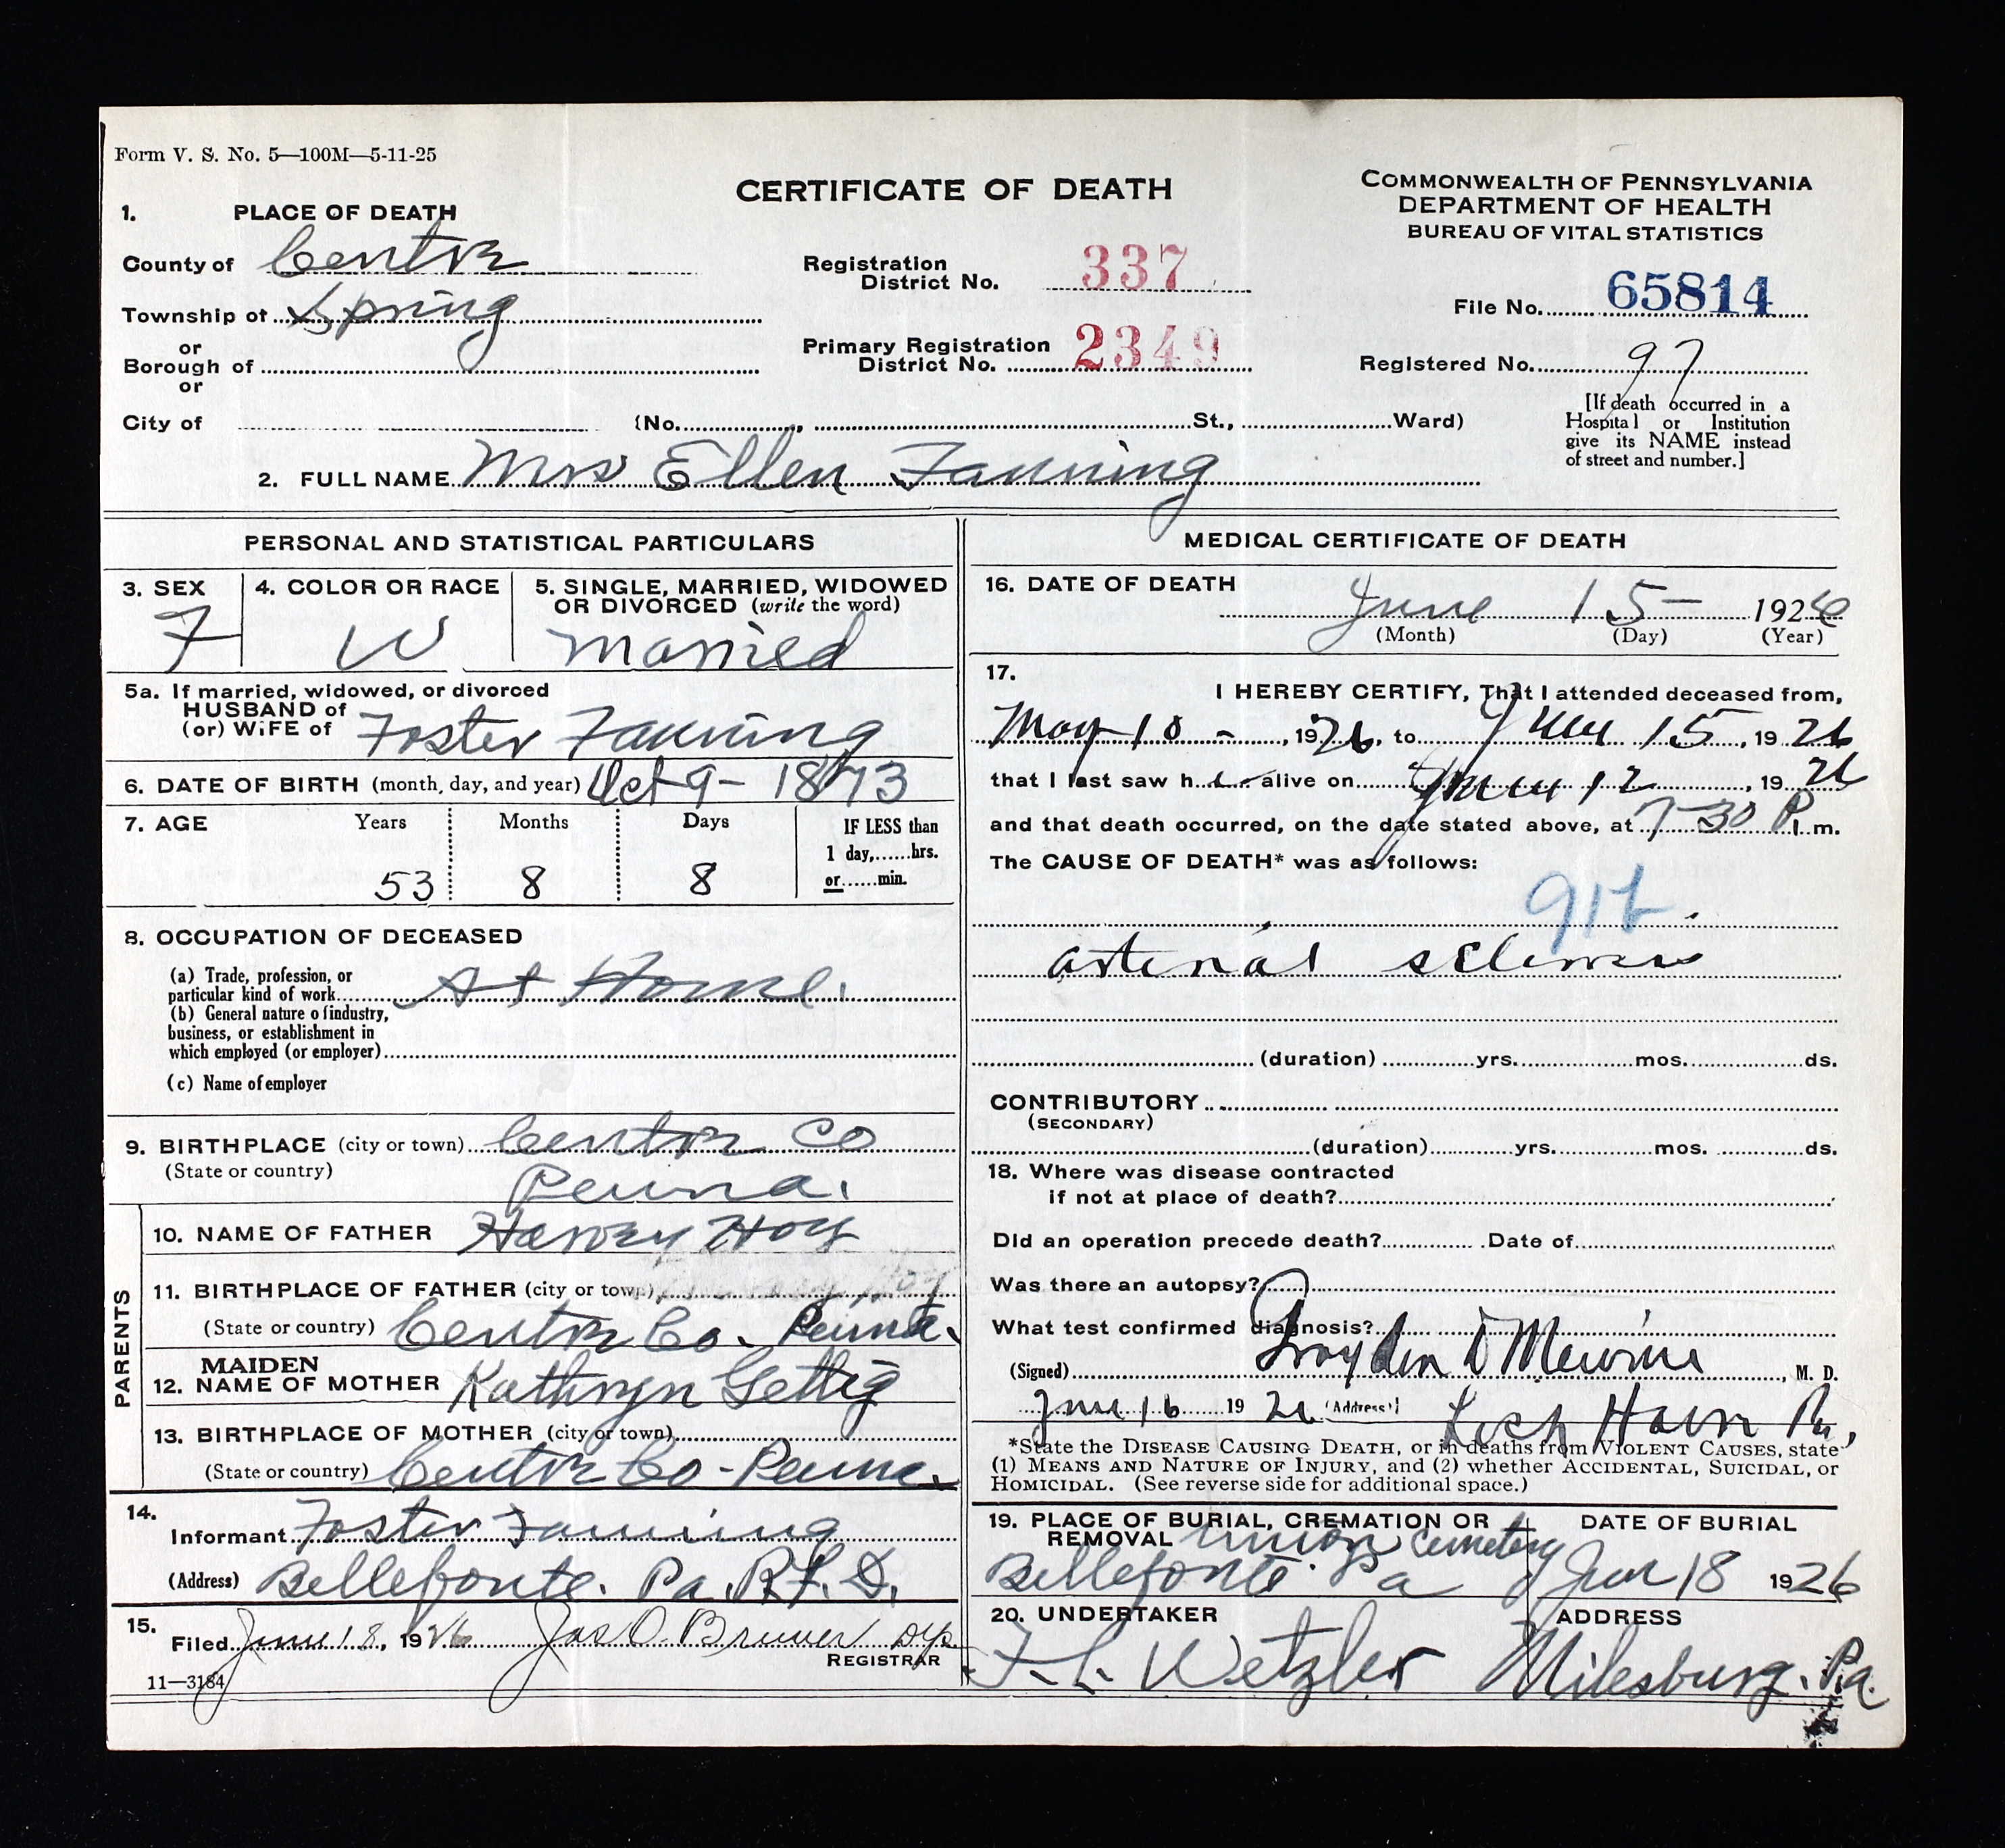 Form V. S. No. 5—100M—5-11-25
CERTIFICATE OF DEATH
COMMONWEALTH OF PENNSYLVANIA
DEPARTMENT OF HEALTH
BUREAU OF VITAL STATISTICS
1. PLACE OF DEATH
County of Centre
Township of Spring
or
Borough of
or
City of
Registration District No. 337
Primary Registration District No. 2349
File No. 65814
Registered No. 97
(No. , St., Ward)
[If death occurred in a
Hospital or Institution
give its NAME instead
of street and number.]
2. FULL NAME Mrs Ellen Fanning
PERSONAL AND STATISTICAL PARTICULARS
3. SEX F
4. COLOR OR RACE W
5. SINGLE, MARRIED, WIDOWED
OR DIVORCED (write the word)
Married
5a. If married, widowed, or divorced
HUSBAND of
(or) WIFE of Foster Fanning
6. DATE OF BIRTH (month, day, and year) Oct 9 - 1873
7. AGE Years Months Days IF LESS than
1 day, hrs.
53 8 8 or min.
8. OCCUPATION OF DECEASED
(a) Trade, profession, or
particular kind of work At Home.
(b) General nature of industry,
business, or establishment in
which employed (or employer)
(c) Name of employer
9. BIRTHPLACE (city or town) Centre Co
(State or country) Penna.
PARENTS
10. NAME OF FATHER Harvey Hoy
11. BIRTHPLACE OF FATHER (city or town) Hoy
(State or country) Centre Co. Penna.
12. MAIDEN NAME OF MOTHER Kathryn Gettig
13. BIRTHPLACE OF MOTHER (city or town)
(State or country) Centre Co - Penna.
14.
Informant Foster Fanning
(Address) Bellefonte. Pa. R.F.D.
15.
Filed June 18, 1926 Jas O. Brewer Dep
REGISTRAR
11—3184
MEDICAL CERTIFICATE OF DEATH
16. DATE OF DEATH June 15 - 1926
(Month) (Day) (Year)
17.
I HEREBY CERTIFY, That I attended deceased from,
May 10 - , 1926, to June 15, 1926
that I last saw her alive on June 12, 1926
and that death occurred, on the date stated above, at 7-30 P. m.
The CAUSE OF DEATH* was as follows:
91b
arterial sclerosis
(duration) yrs. mos. ds.
CONTRIBUTORY
(SECONDARY)
(duration) yrs. mos. ds.
18. Where was disease contracted
if not at place of death?
Did an operation precede death? Date of
Was there an autopsy?
What test confirmed diagnosis?
(Signed) D , M. D.
June 16 1926 (Address) Lock Haven Pa,
*State the DISEASE CAUSING DEATH, or in deaths from VIOLENT CAUSES, state
(1) MEANS AND NATURE OF INJURY, and (2) whether ACCIDENTAL, SUICIDAL, or
HOMICIDAL. (See reverse side for additional space.)
19. PLACE OF BURIAL, CREMATION OR
REMOVAL Union Cemetery
Bellefonte Pa
DATE OF BURIAL
Jun 18 1926
20. UNDERTAKER
F. L. Wetzler
ADDRESS
Milesburg, Pa.